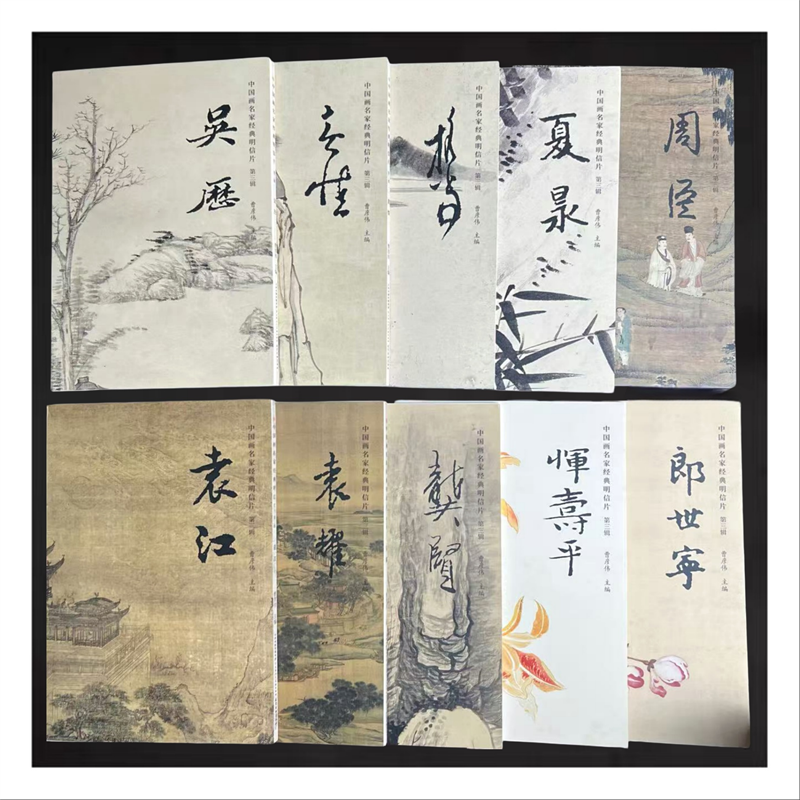 吳歷
中国画名家经典明信片 第三辑 曹彦伟 主编
中国画名家经典明信片 第三辑 曹彦伟 主编
中国画名家经典明信片 第三辑 曹彦伟 主编
夏㫤
中国画名家经典明信片 第三辑 曹彦伟 主编
周臣
中国画名家经典明信片 第三辑 曹彦伟 主编
袁江
中国画名家经典明信片 第三辑 曹彦伟 主编
袁耀
中国画名家经典明信片 第三辑 曹彦伟 主编
龔賢
中国画名家经典明信片 第三辑 曹彦伟 主编
惲壽平
中国画名家经典明信片 第三辑 曹彦伟 主编
郎世寧
中国画名家经典明信片 第三辑 曹彦伟 主编